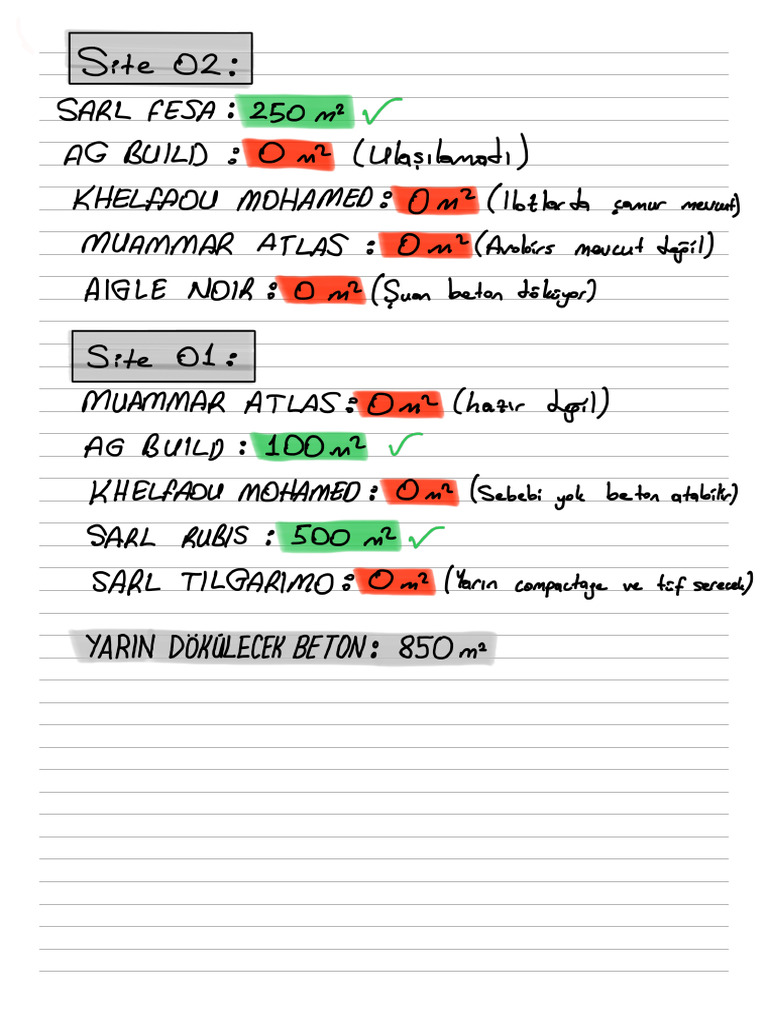 Site 02:
SARL FESA: 250 m² ✓
AG BUILD : 0 m² (Ulaşılamadı)
KHELFAOU MOHAMED: 0 m² (Ilotlarda çamur mevcut)
MUAMMAR ATLAS : 0 m² (Arobirs mevcut değil)
AIGLE NOIR: 0 m² (Şuan beton döküyor)
Site 01:
MUAMMAR ATLAS: 0 m² (hazır değil)
AG BUILD: 100 m² ✓
KHELFAOU MOHAMED: 0 m² (Sebebi yok beton atabilir)
SARL RUBIS: 500 m² ✓
SARL TILGARIMO: 0 m² (Yarın compactage ve tüf serecek)
YARIN DÖKÜLECEK BETON: 850 m²